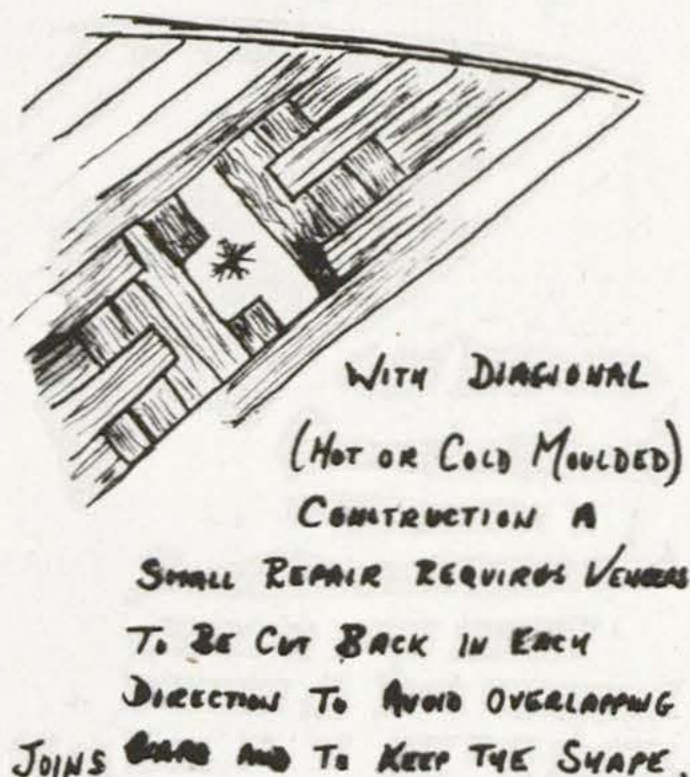 WITH DIAGIONAL
(HOT OR COLD MOULDED)
CONSTRUCTION A
SMALL REPAIR REQUIRES VENEERS
TO BE CUT BACK IN EACH
DIRECTION TO AVOID OVERLAPPING
JOINS AND TO KEEP THE SHAPE.